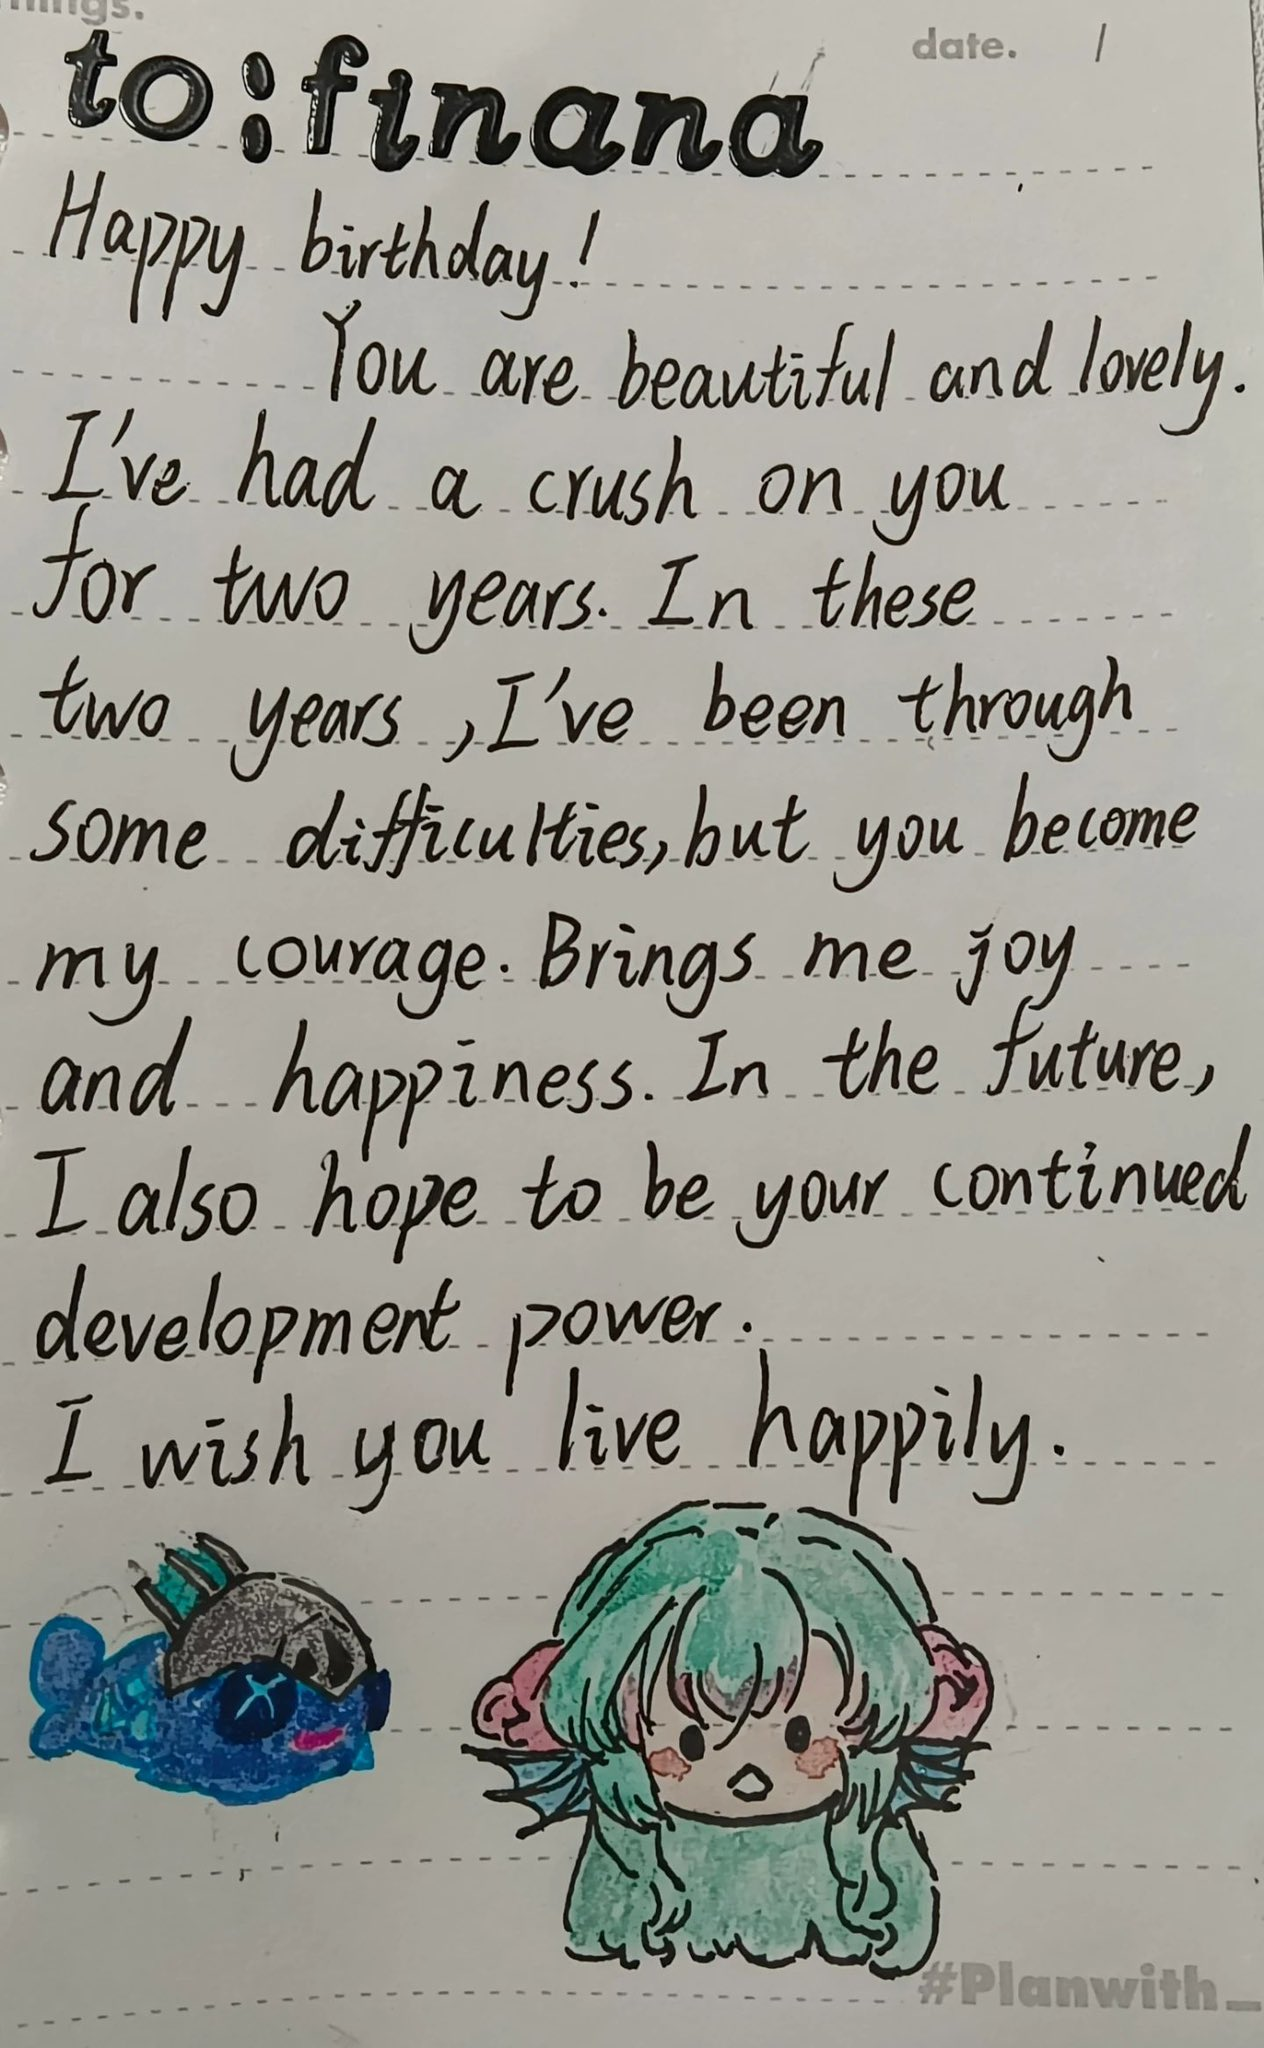 nings.
date. /
to:finana
Happy birthday!
You are beautiful and lovely.
I've had a crush on you
for two years. In these
two years, I've been through
some difficulties, but you become
my courage. Brings me joy
and happiness. In the future,
I also hope to be your continued
development power.
I wish you live happily.
#Planwith_